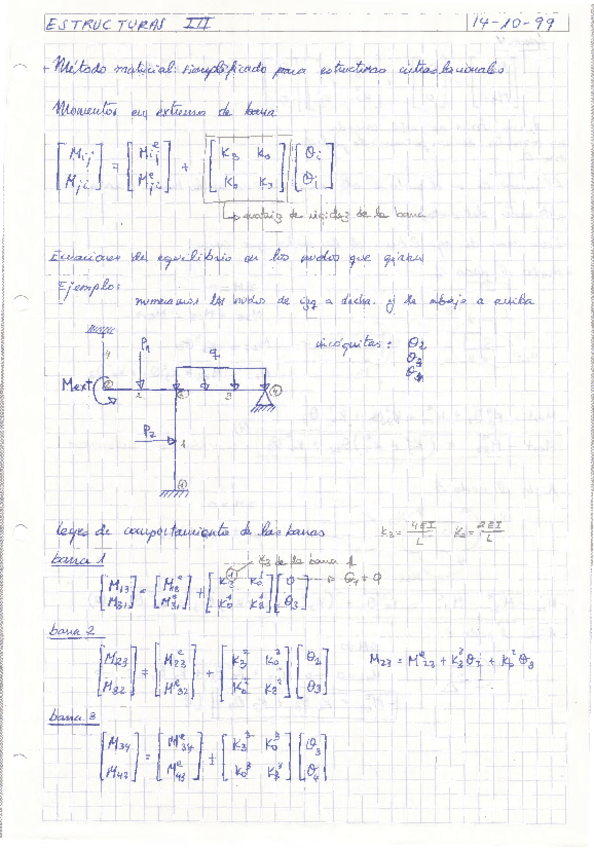 ESTRUCTURAS III 14-10-99
+ Método matricial simplificado para estructuras intraslacionales
Momentos en extremo de barra
[Mij Mji] = [Mᵉij Mᵉji] + [K₃ K₀ K₀ K₃] [θi θj]
→ matriz de rigidez de la barra
Ecuaciones de equilibrio en los nudos que giran
Ejemplo:
numeramos los nudos de izq a decha. y de abajo a arriba
incógnitas: θ2
θ3
θ4
4
P1
q
Mext
2
3
4
P2
1
1
leyes de comportamiento de las barras K₃ = 4EI/L K₀ = 2EI/L
barra 1
K₃ de la barra 1
[M13 M31] = [Mᵉ13 Mᵉ31] + [K₃¹ K₀¹ K₀¹ K₃¹] [0 θ3] → θ1 = 0
barra 2
[M23 M32] = [Mᵉ23 Mᵉ32] + [K₃² K₀² K₀² K₃²] [θ2 θ3] M23 = Mᵉ23 + K₃²θ2 + K₀²θ3
barra 3
[M34 M43] = [Mᵉ34 Mᵉ43] + [K₃³ K₀³ K₀³ K₃³] [θ3 θ4]